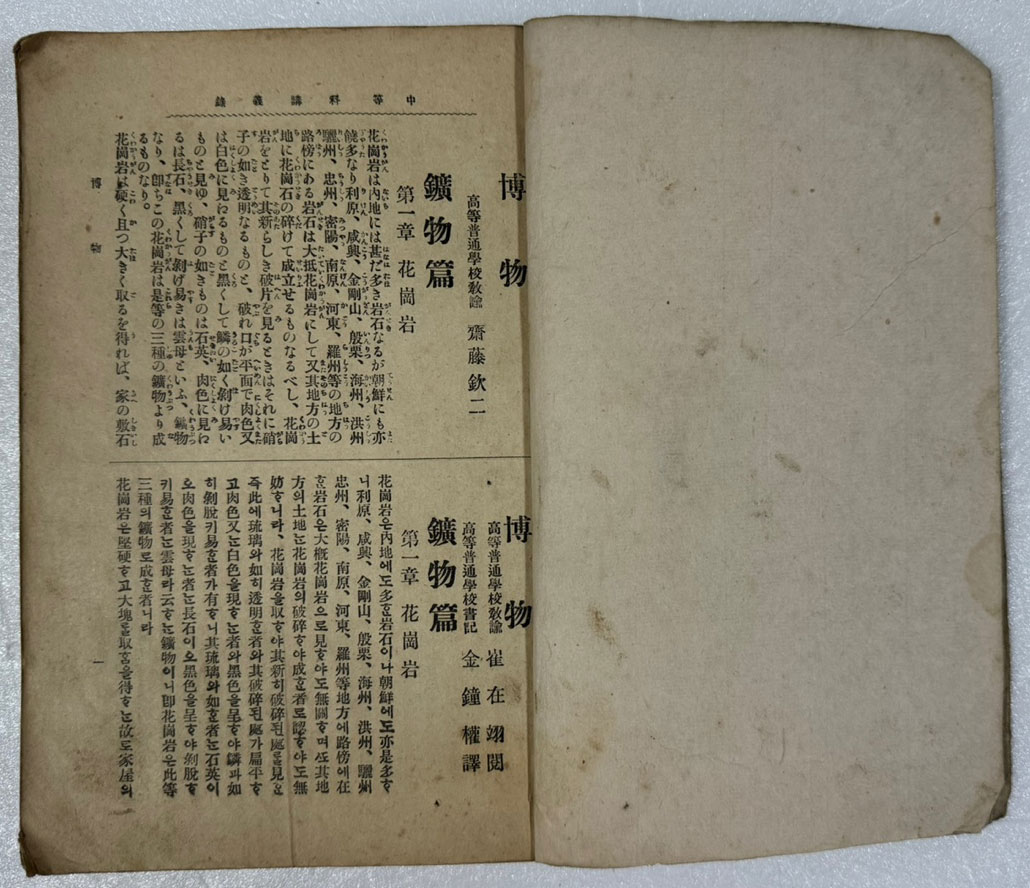 中等科講義錄
博物
高等普通學校敎諭 齋藤欽二
鑛物篇
第一章 花崗岩
花崗岩は內地には甚だ多き岩石なるが朝鮮にも亦
饒多なり利原、咸興、金剛山、殷栗、海州、洪州
驪州、忠州、密陽、南原、河東、羅州等の地方の
路傍にある岩石は大抵花崗岩にして又其地方の土
地に花崗石の碎けて成立せるものなるべし、花崗
岩をとりて其新らしき破片を見るときはそれに硝
子の如き透明なるものと、破れ口が平面で肉色又
は白色に見ゆるものと黑くして鱗の如く剝げ易い
ものと見ゆ、硝子の如きものは石英、肉色に見ゆ
るは長石、黑くして剝げ易きは雲母といふ、鑛物
なり、卽ちこの花崗岩は是等の三種の鑛物より成
るものなり。
花崗岩は硬く且つ大きく取るを得れば、家の敷石
博物
高等普通學校敎諭 崔在翊閱
高等普通學校書記 金鐘權譯
鑛物篇
第一章 花崗岩
花崗岩은內地에도多ᄒᆞᆫ岩石이나朝鮮에도亦是多ᄒᆞ
니利原、咸興、金剛山、殷栗、海州、洪州、驪州
忠州、密陽、南原、河東、羅州等地方에路傍에在
ᄒᆞᆫ岩石은大槪花崗岩으로見ᄒᆞ야도無關ᄒᆞ며ᄯᅩ其地
方의土地ᄂᆞᆫ花崗岩의破碎ᄒᆞ야成ᄒᆞᆫ者로認ᄒᆞ야도無
妨ᄒᆞ니라、花崗岩을取ᄒᆞ야其新히破碎된處를見ᄒᆞᆫ
즉此에琉璃와如히透明ᄒᆞᆫ者와其破碎된處가扁平ᄒᆞ
고肉色又ᄂᆞᆫ白色을現ᄒᆞᄂᆞᆫ者와黑色을呈ᄒᆞ야鱗과如
히剝脫키易ᄒᆞᆫ者가有ᄒᆞ니其琉璃와如ᄒᆞᆫ者ᄂᆞᆫ石英이
오肉色을現ᄒᆞᄂᆞᆫ者ᄂᆞᆫ長石이오黑色을呈ᄒᆞ야剝脫ᄒᆞ
키易ᄒᆞᆫ者ᄂᆞᆫ雲母라云ᄒᆞᄂᆞᆫ鑛物이니卽花崗岩은此等
三種의鑛物로成ᄒᆞᆫ者니라
花崗岩은堅硬ᄒᆞ고大塊를取ᄒᆞᆷ을得ᄒᆞᄂᆞᆫ故로家屋의
博物
一